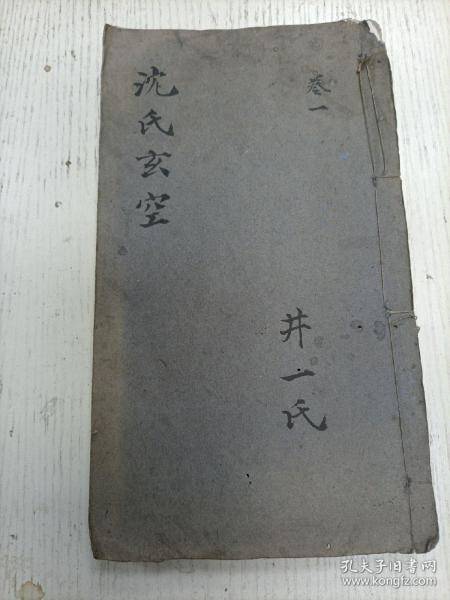 沈氏玄空
卷一
井一氏
孔夫子旧书网
www.kongfz.com